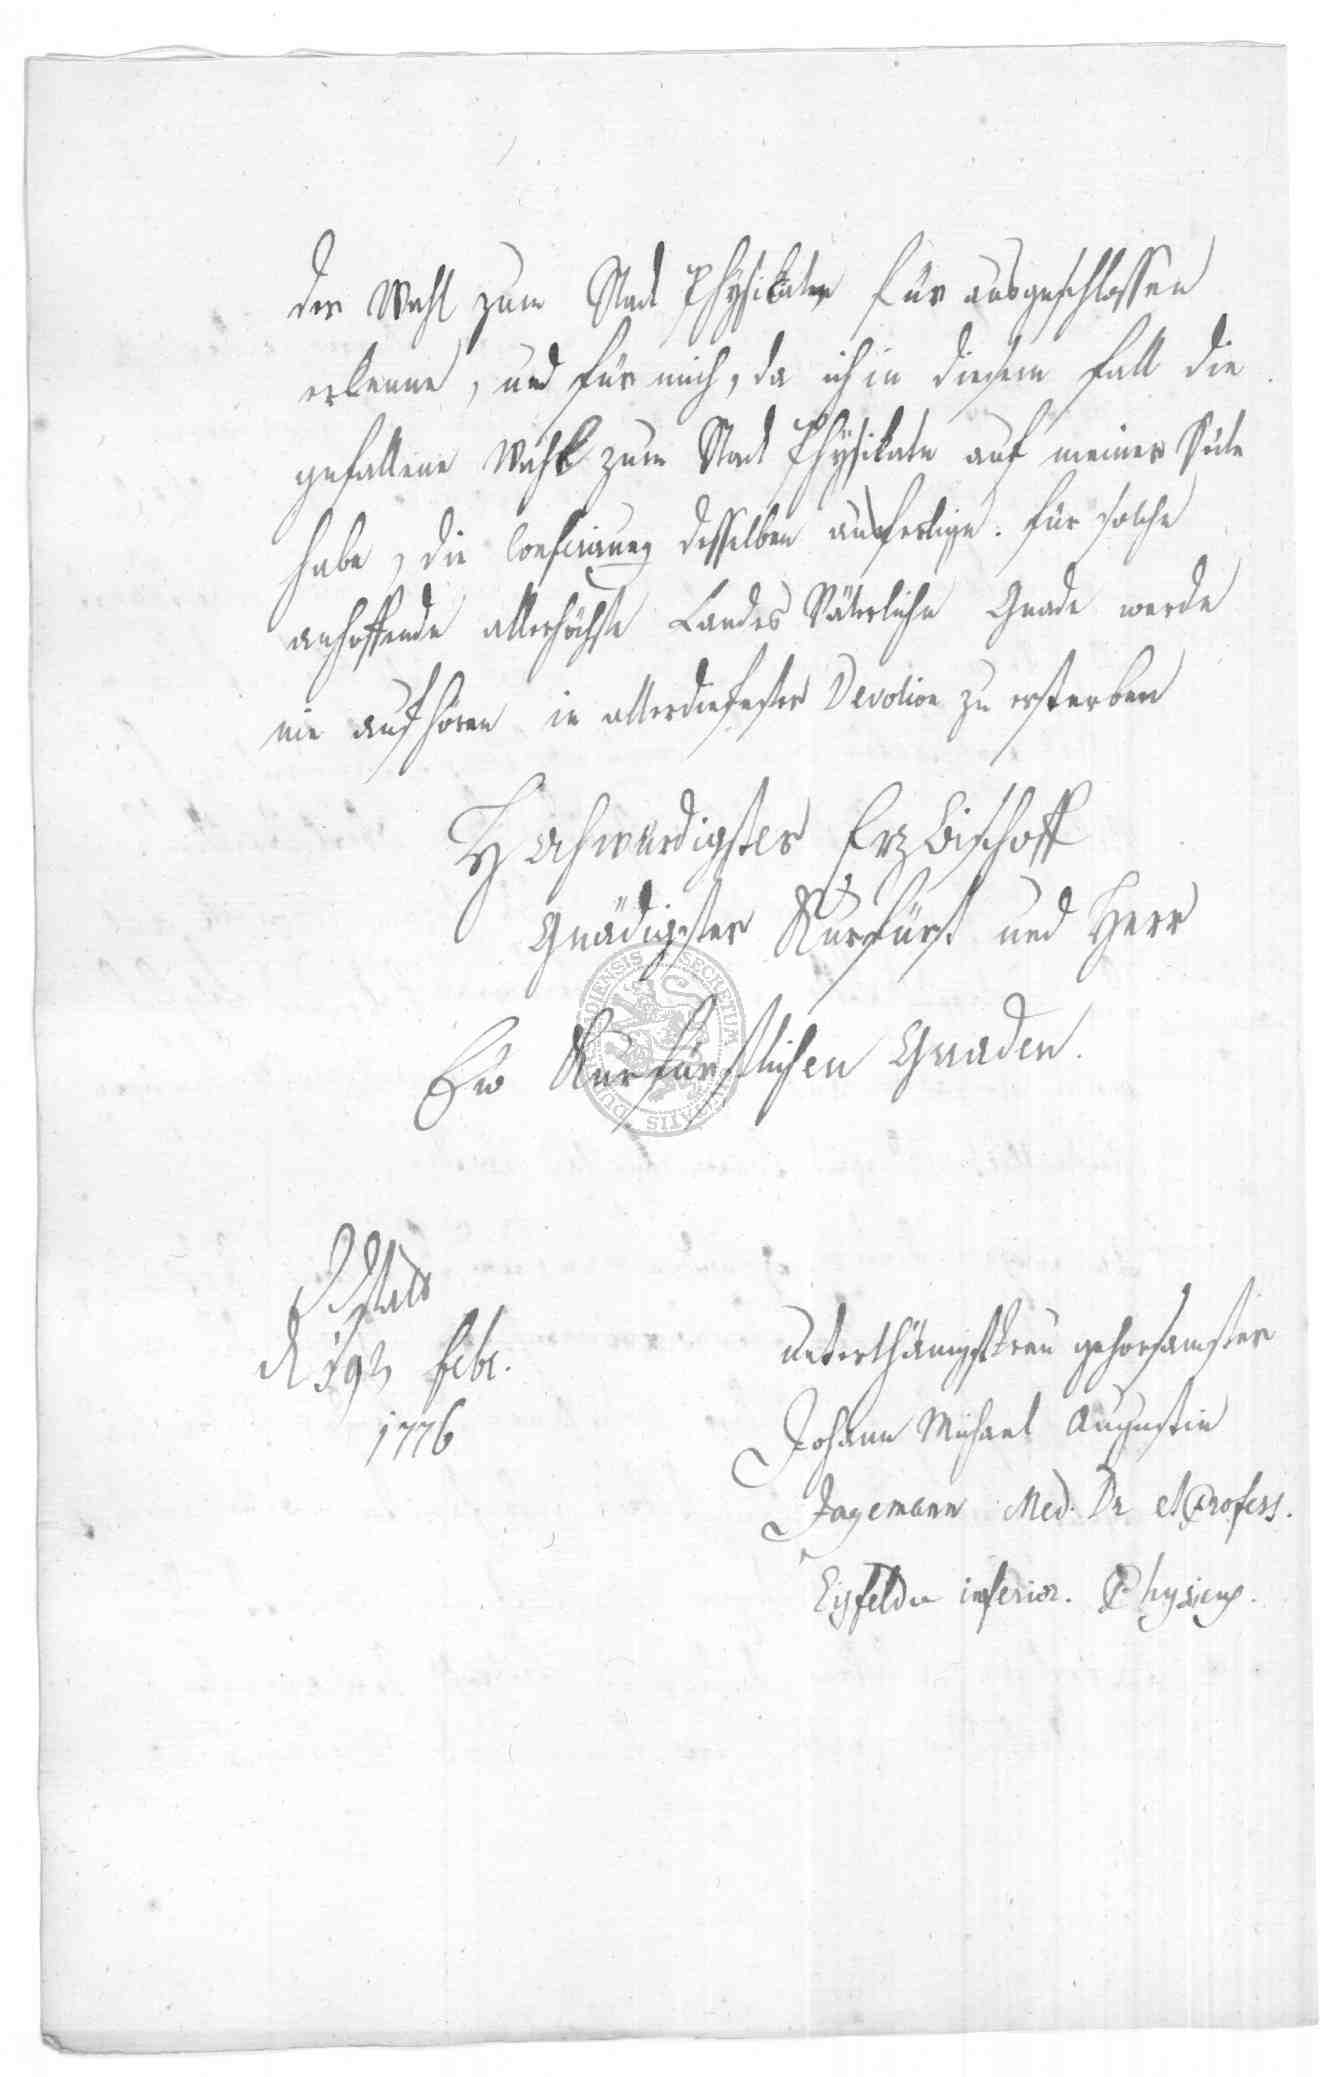 der Wahl zum Stadt Physikate für ausgeschlossen
erkenne, und für mich, da ich in diesem Fall die
gefallene Wahl zum Stadt Physikate auf meiner Seite
habe, die Confirmung desselben ausfertige. für solche
anhoffende allerhöchste Landes Väterliche Gnade werde
nie aufhören in allertiefester Devotion zu ersterben
Hochwürdigster Erzbischoff
Gnädigster Kurfürst und Herr
Ew Kurfürstlichen Gnaden.
SECRETUM
den 19ten Febr.
1776
unterthänigst treu gehorsamster
Johann Michael Augustin
Jagemann Med. Dr et Profess.
Eisfeldiae inferior. Physicus.